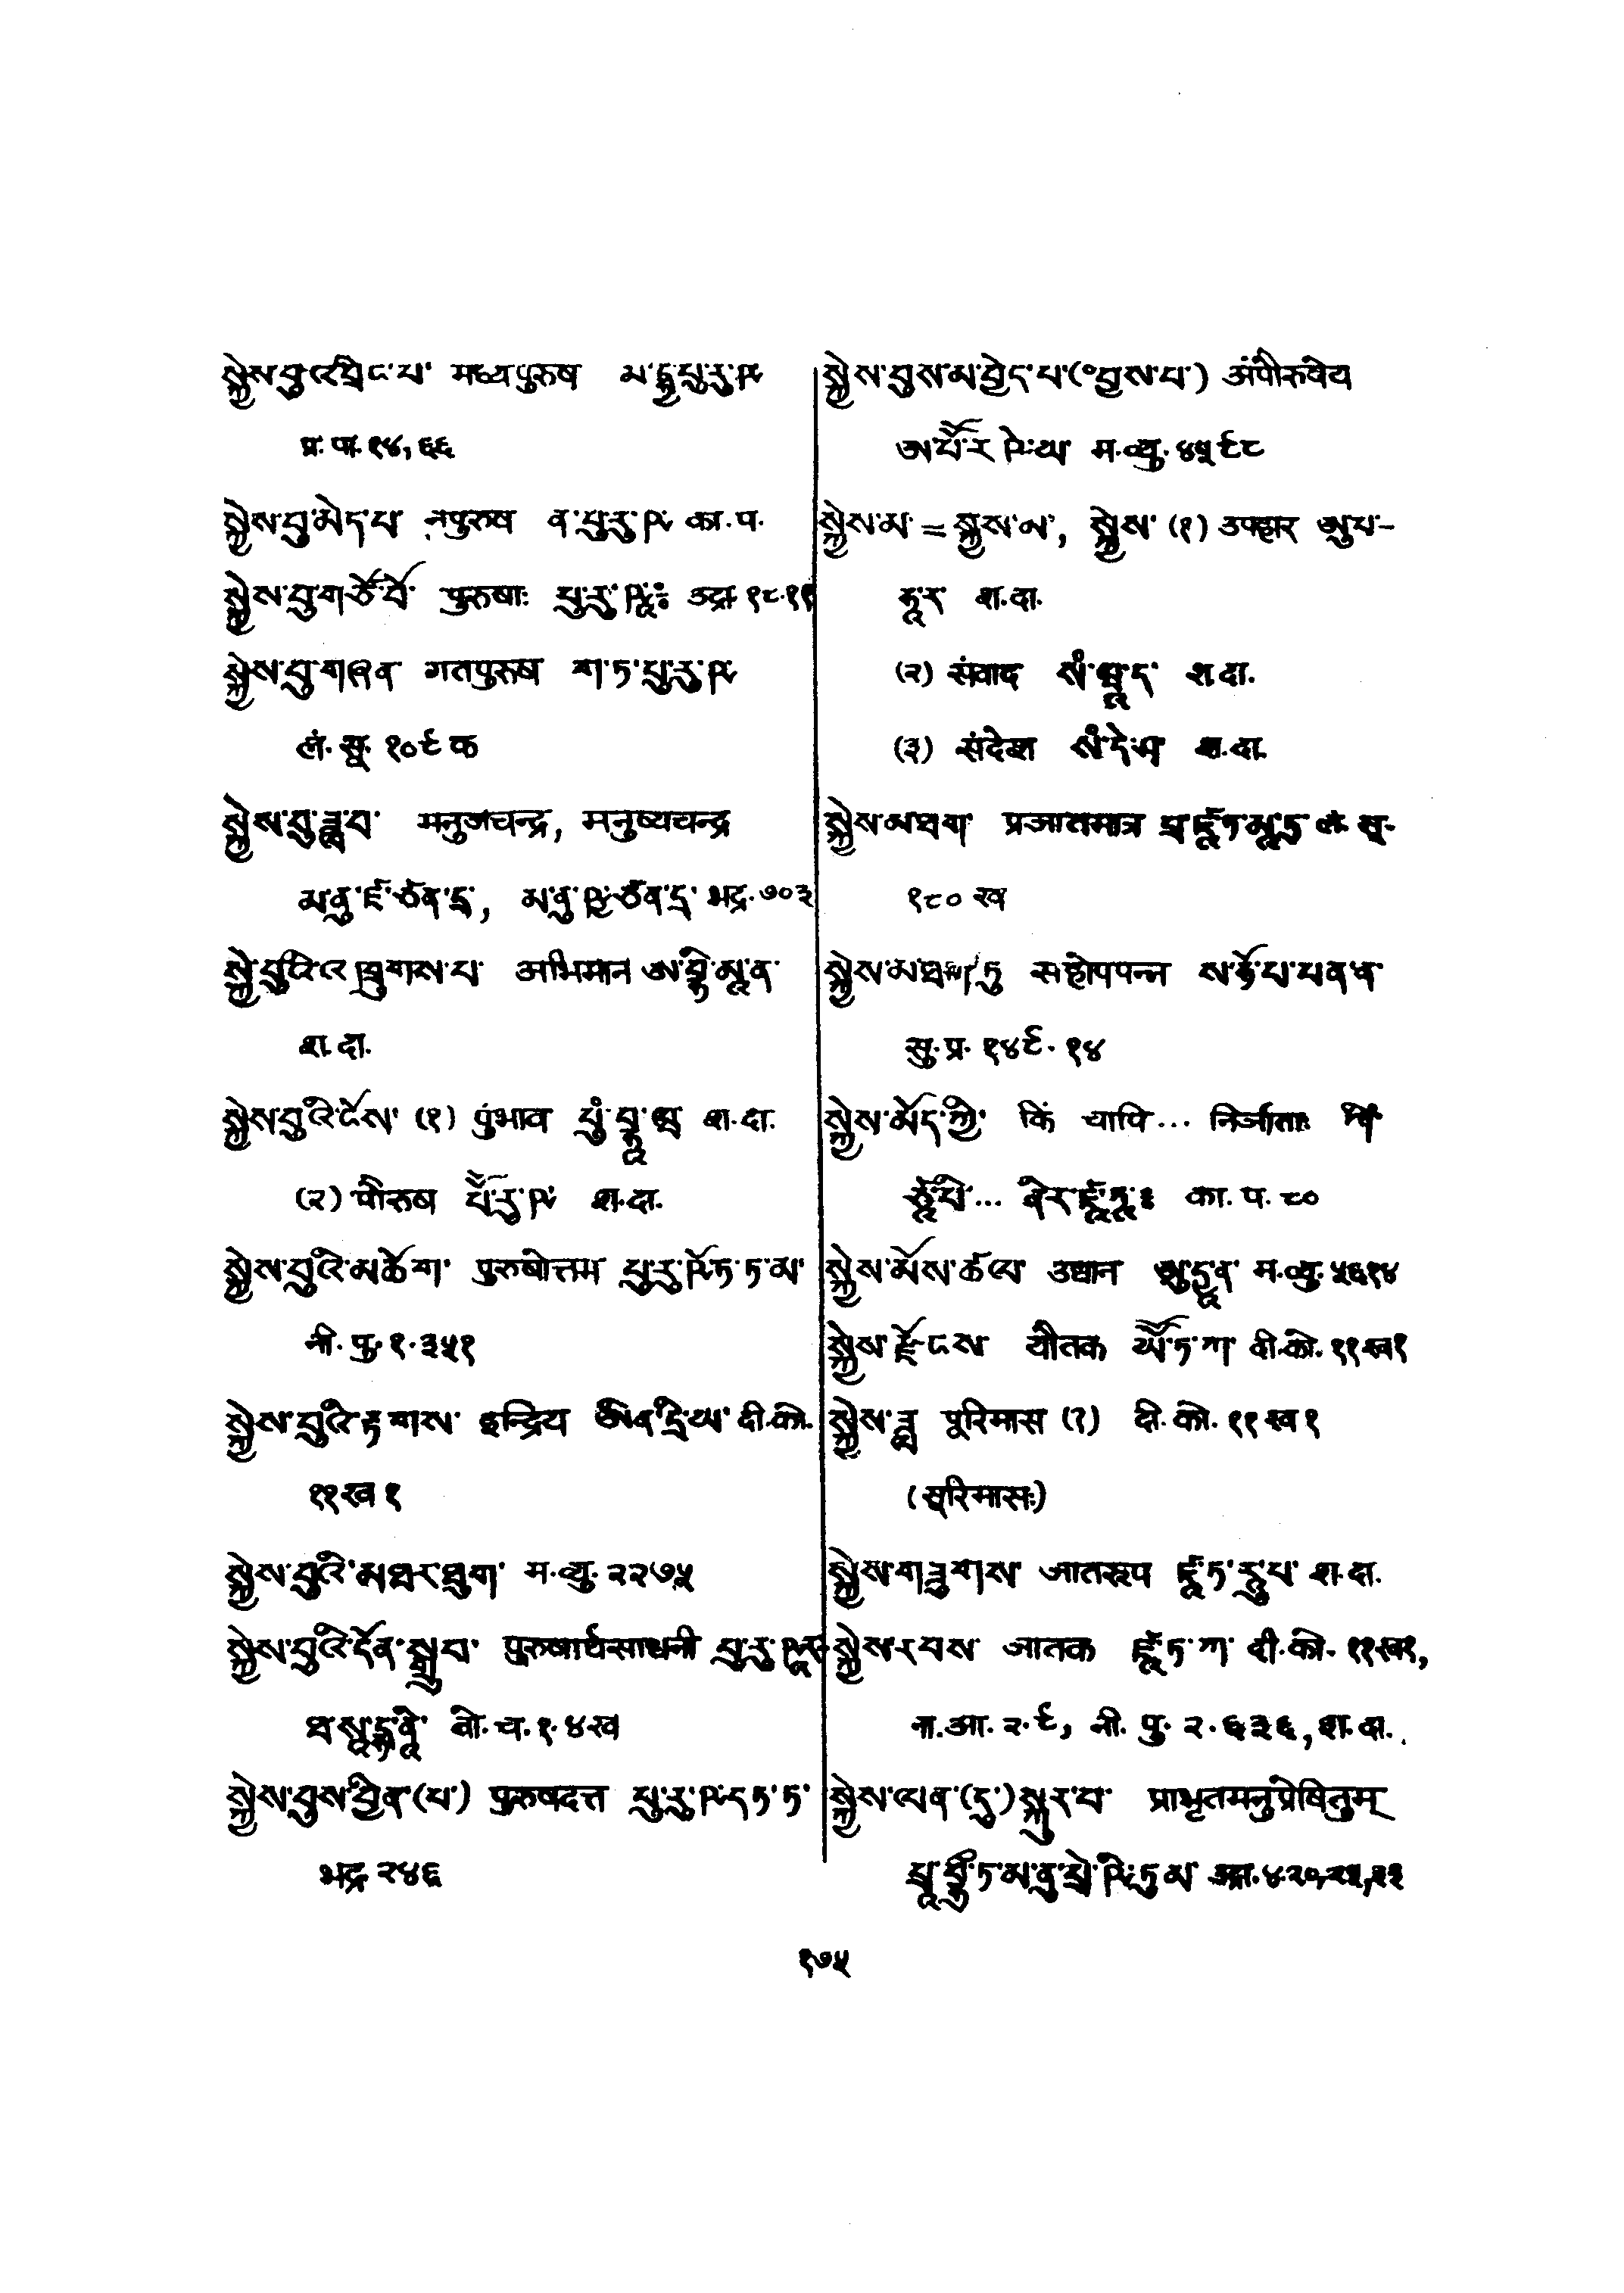 སྐྱེས་བུ་འབྲིང་པ་ मध्यपुरुष མ་དྷྱ་པུ་རུ་ཥ
प्र. पा. १४, ६६
སྐྱེས་བུ་མེད་པ་ नपुरुष ན་པུ་རུ་ཥ का. प.
སྐྱེས་བུ་གཙོ་བོ་ पुरुषाः པུ་རུ་ཥཱཿ उदा १८.११
སྐྱེས་བུ་གཞན་ गतपुरुष ག་ཏ་པུ་རུ་ཥ
लं. सू. १०९ क
སྐྱེས་བུ་ཟླ་བ་ मनुजचन्द्र, मनुष्यचन्द्र
མ་ནུ་ཛ་ཙན་དྲ, མ་ནུ་ཥྱ་ཙན་དྲ भद्र. ७०३
སྐྱེ་བུའི་འཁྲུགས་པ་ अभिमान ཨ་བྷི་མཱ་ན་
श. दा.
སྐྱེས་བུའི་ངེས་ (१) पुंभाव པུཾ་བྷཱ་ཝ श. दा.
(२) पौरुष པཽ་རུ་ཥ श. दा.
སྐྱེས་བུའི་མཆོག་ पुरुषोत्तम པུ་རུ་ཥོཏ་ཏ་མ་
नी. पु. १. ३५१
སྐྱེས་བུའི་རྟགས་ इन्द्रिय ཨིན་དྲི་ཡ་ दी. को.
११ ख १
སྐྱེས་བུའི་མཐར་ཐུག་ म. व्यु. २२७५
སྐྱེས་བུའི་དོན་སྒྲུབ་ पुरुषार्थसाधनी པུ་རུ་ཥཱར་
ཐ་སཱ་དྷ་ནཱི་ बो. च. १. ४ ख
སྐྱེས་བུས་བྱིན་(པ་) पुरुषदत्त པུ་རུ་ཥ་དཏ་ཏ་
भद्र २४६
སྐྱེས་བུས་མ་བྱེད་པ་(°བྱས་པ་) अपौरुषेय
ཨ་པཽ་ར་ཥེ་ཡ म. व्यु. ४५९८
སྐྱེས་མ་ = སྐྱས་མ་, སྐྱེས་ (१) उपहार ཨུ་པ་-
ཧཱ་ར श. दा.
(२) संवाद སཾ་ཝཱ་ད་ श. दा.
(३) संदेश སཾ་དེ་ཤ श. दा.
སྐྱེས་མ་ཐག་ प्रजातमात्र པྲ་ཛཱ་ཏ་མཱ་ཏྲ लं. सू.
१८० ख
སྐྱེས་མ་ཐག་ཏུ सहोपपन्न ས་ཧོ་པ་པནན་
सु. प्र. १४९. १४
སྐྱེས་མོད་ཀྱི་ किं चापि... निर्जाताः ཀིཾ
ཙཱ་པི་... ནིར་ཛཱ་ཏཱཿ का. प. ८०
སྐྱེས་མོས་ཚལ་ उद्यान ཨུ་དྱཱ་ན་ म. व्यु. ५६१४
སྐྱེས་རྫོངས་ यौतक ཡཽ་ཏ་ཀ दी. को. ११ ख १
སྐྱེས་ཟླ पूरिमास (?) दी. को. ११ ख १
(सूरिमासः)
སྐྱེས་གཟུགས་ जातरूप ཛཱ་ཏ་རཱུ་པ་ श. दा.
སྐྱེས་རབས जातक ཛཱ་ཏ་ཀ दी. को. ११ ख १,
ना. आ. २. ९, नी. पु. २. ६३६, श. दा.
སྐྱེས་ལན་(དུ་)སྐུར་བ་ प्राभृतमनुप्रेषितुम्
པྲཱ་བྷྲྀ་ཏ་མ་ནུ་པྲེ་ཥི་ཏུ་མ
१७५